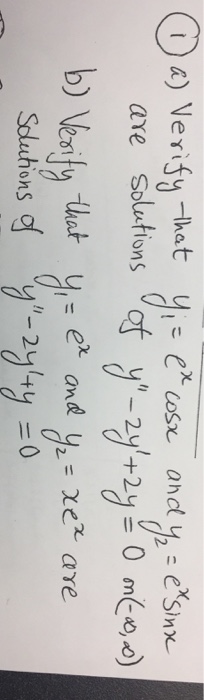 ① a) Verify that y₁ = eˣ cosx and y₂ = eˣ sinx
are solutions of y'' - 2y' + 2y = 0 on (-∞, ∞)
b) Verify that y₁ = eˣ and y₂ = xeˣ are
Solutions of y'' - 2y' + y = 0